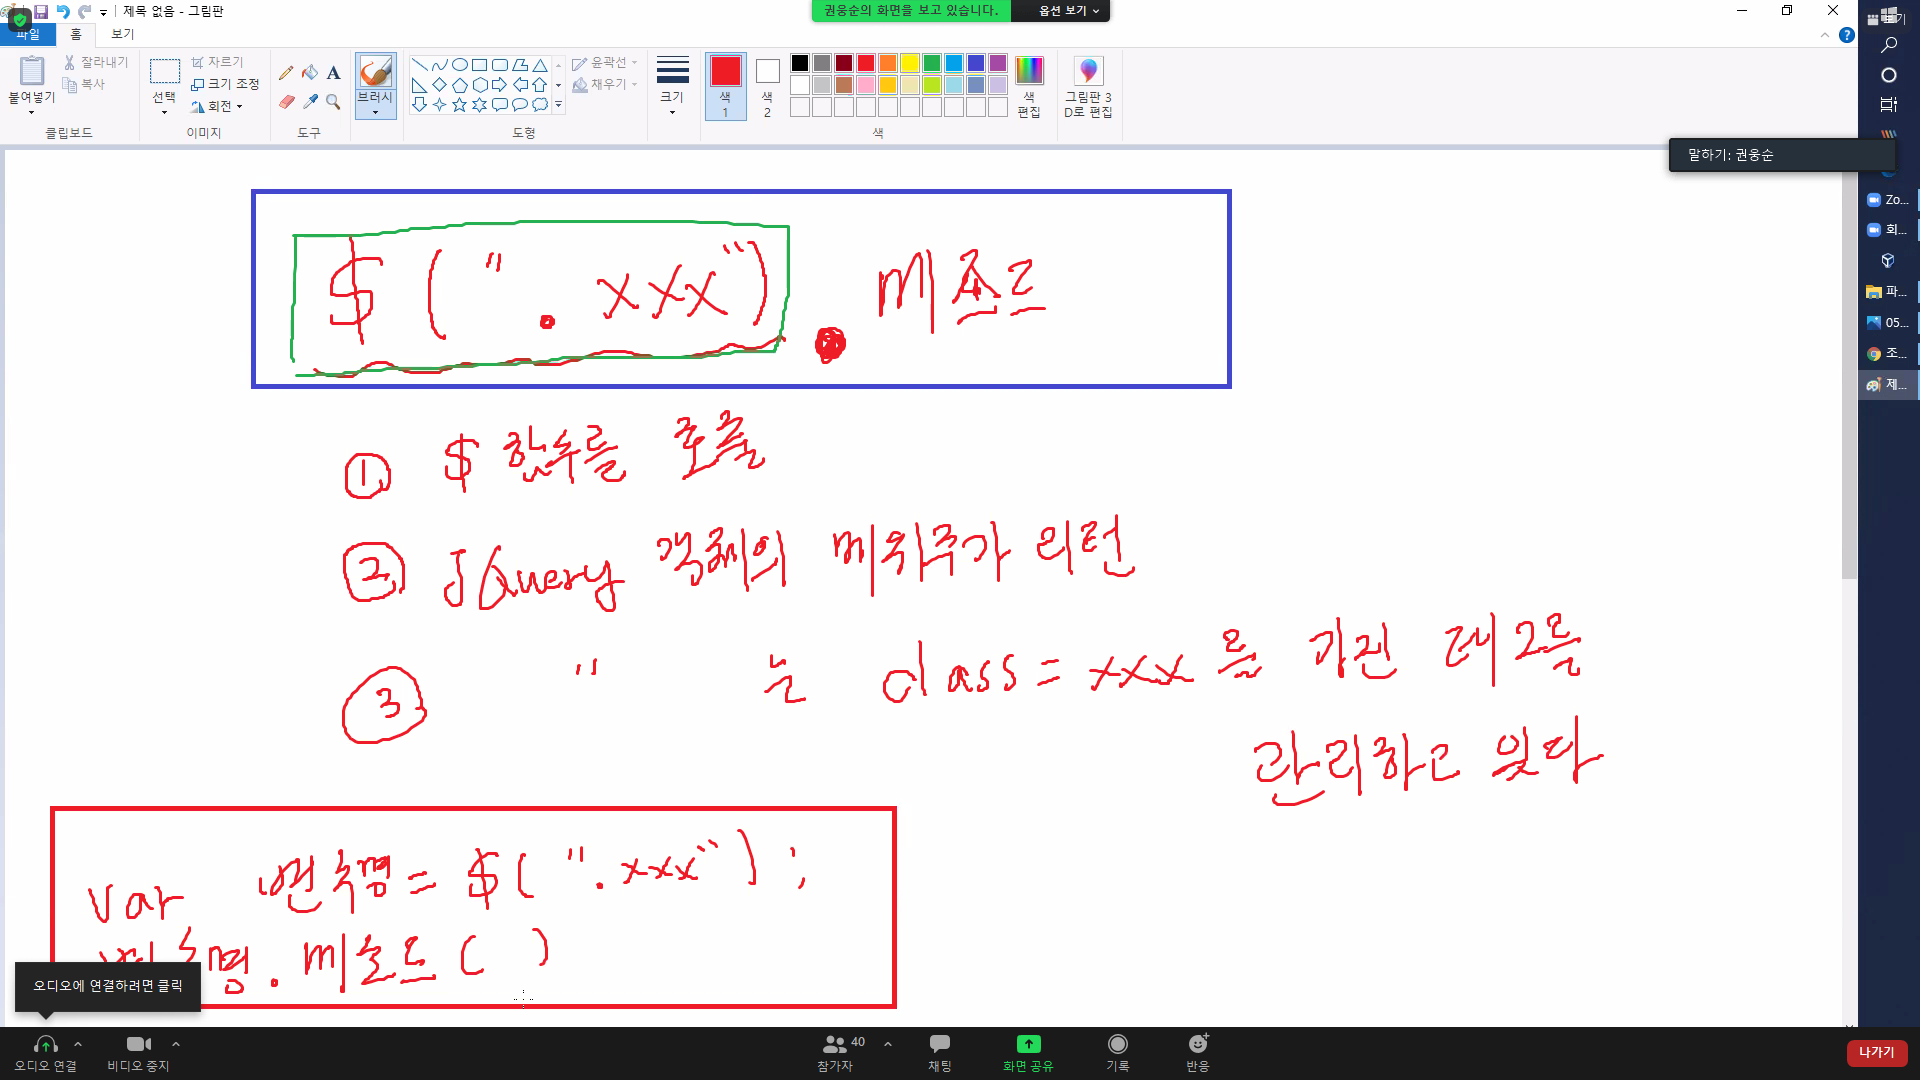 제목 없음 - 그림판
권웅순의 화면을 보고 있습니다.
옵션 보기
파일 홈 보기
붙여넣기
잘라내기
복사
클립보드
선택
자르기
크기 조정
회전
이미지
도구
브러시
도형
윤곽선
채우기
크기
색 1
색 2
색 편집
색
그림판 3D로 편집
말하기: 권웅순
Zo...
회...
파...
05...
조...
제...
$ ( " . xxx" ) . 메소드
1. $ 함수를 호출
2. JQuery 객체의 메위주가 리턴
3 " 는 class = xxx 를 가진 태그를
관리하고 있다
var 변수명 = $( ".xxx" ) ;
변수명.메소드( )
오디오에 연결하려면 클릭
오디오 연결
비디오 중지
40
참가자
채팅
화면 공유
기록
반응
나가기